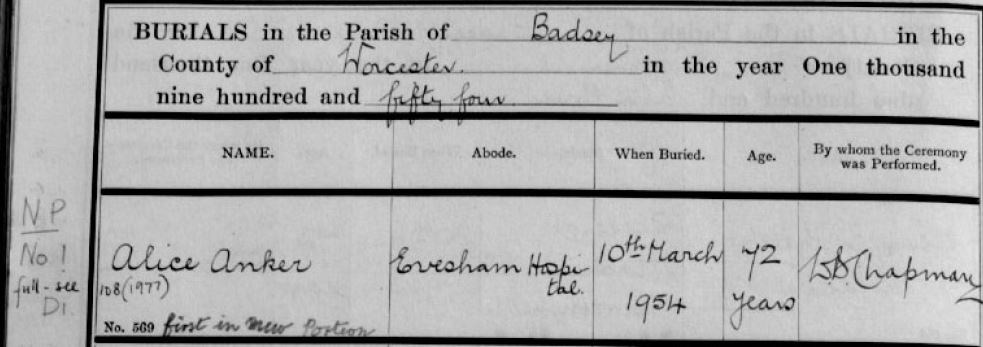 BURIALS in the Parish of Badsey in the
County of Worcester. in the year One thousand
nine hundred and fifty four.
NAME. Abode. When Buried. Age. By whom the Ceremony was Performed.
NP
No 1
full - see
D1.
Alice Anker
108 (1977)
No. 569 first in new Portion
Evesham Hospi
tal.
10th March
1954
72
years
Chapman